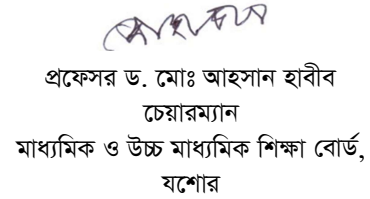 প্রফেসর ড. মোঃ আহসান হাবীব
চেয়ারম্যান
মাধ্যমিক ও উচ্চ মাধ্যমিক শিক্ষা বোর্ড,
যশোর